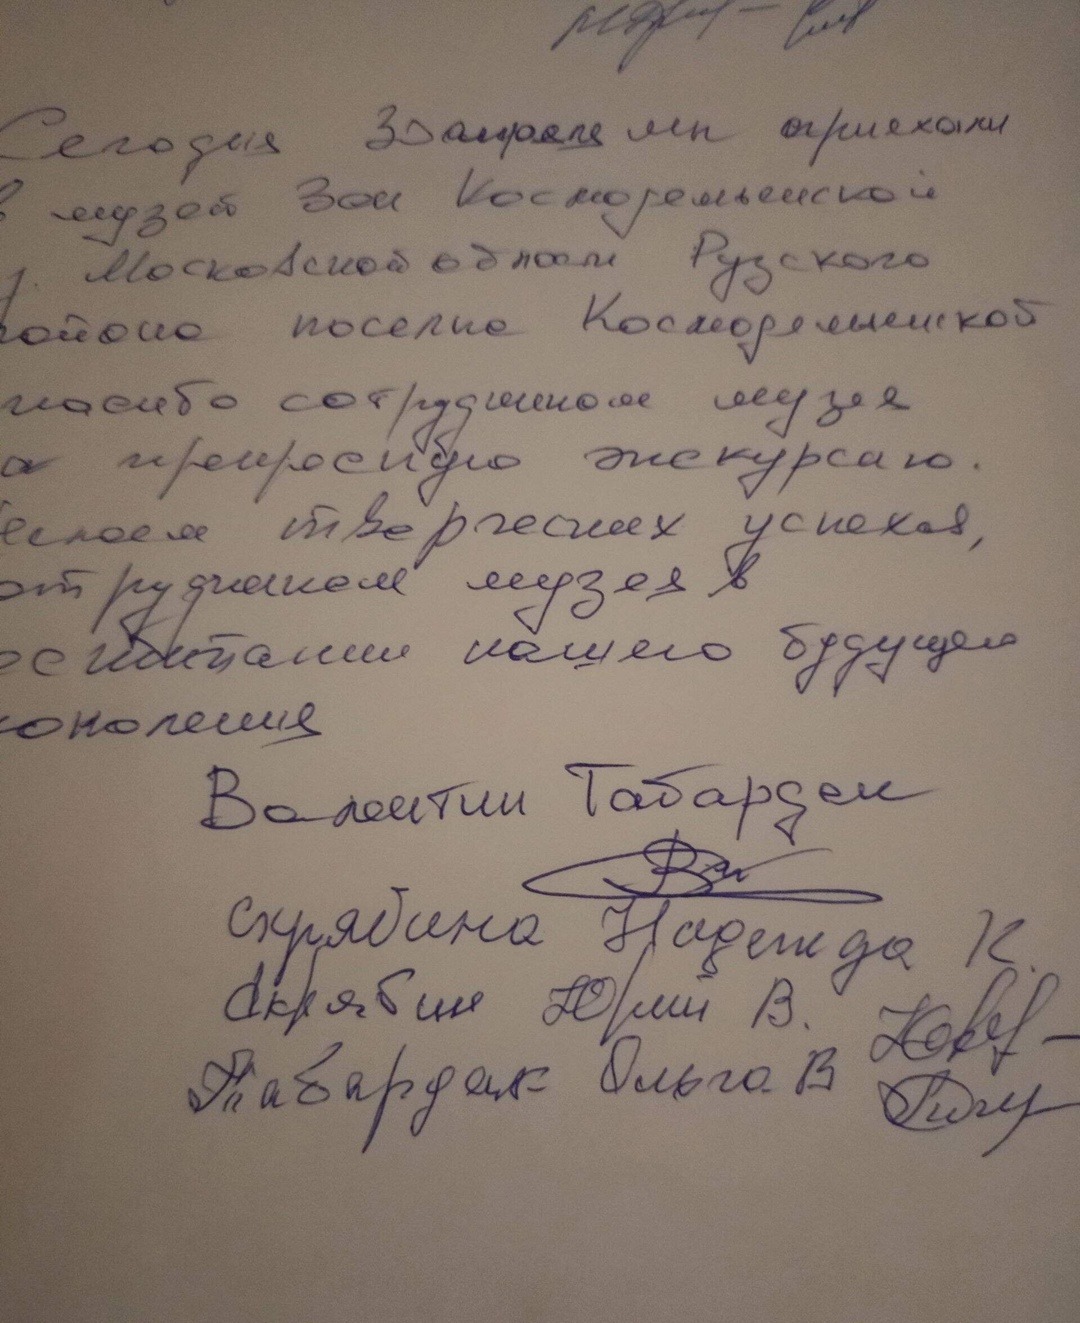 Сегодня 30 апреля мы приехали
в музей Зои Космодемьянской
Московской области Рузского
района поселка Космодемьянской
спасибо сотрудникам музея
за прекрасную экскурсию.
Желаем творческих успехов,
сотрудникам музея в
воспитании нашего будущего
поколения
Валентин Табардак
Скрябина Надежда К.
Скрябин Юрий В.
Табардак Ольга В